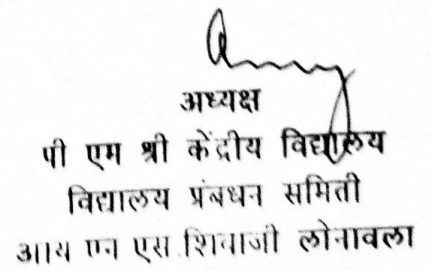 अध्यक्ष
पी एम श्री केंद्रीय विद्यालय
विद्यालय प्रंबधन समिती
आय एन एस शिवाजी लोनावला